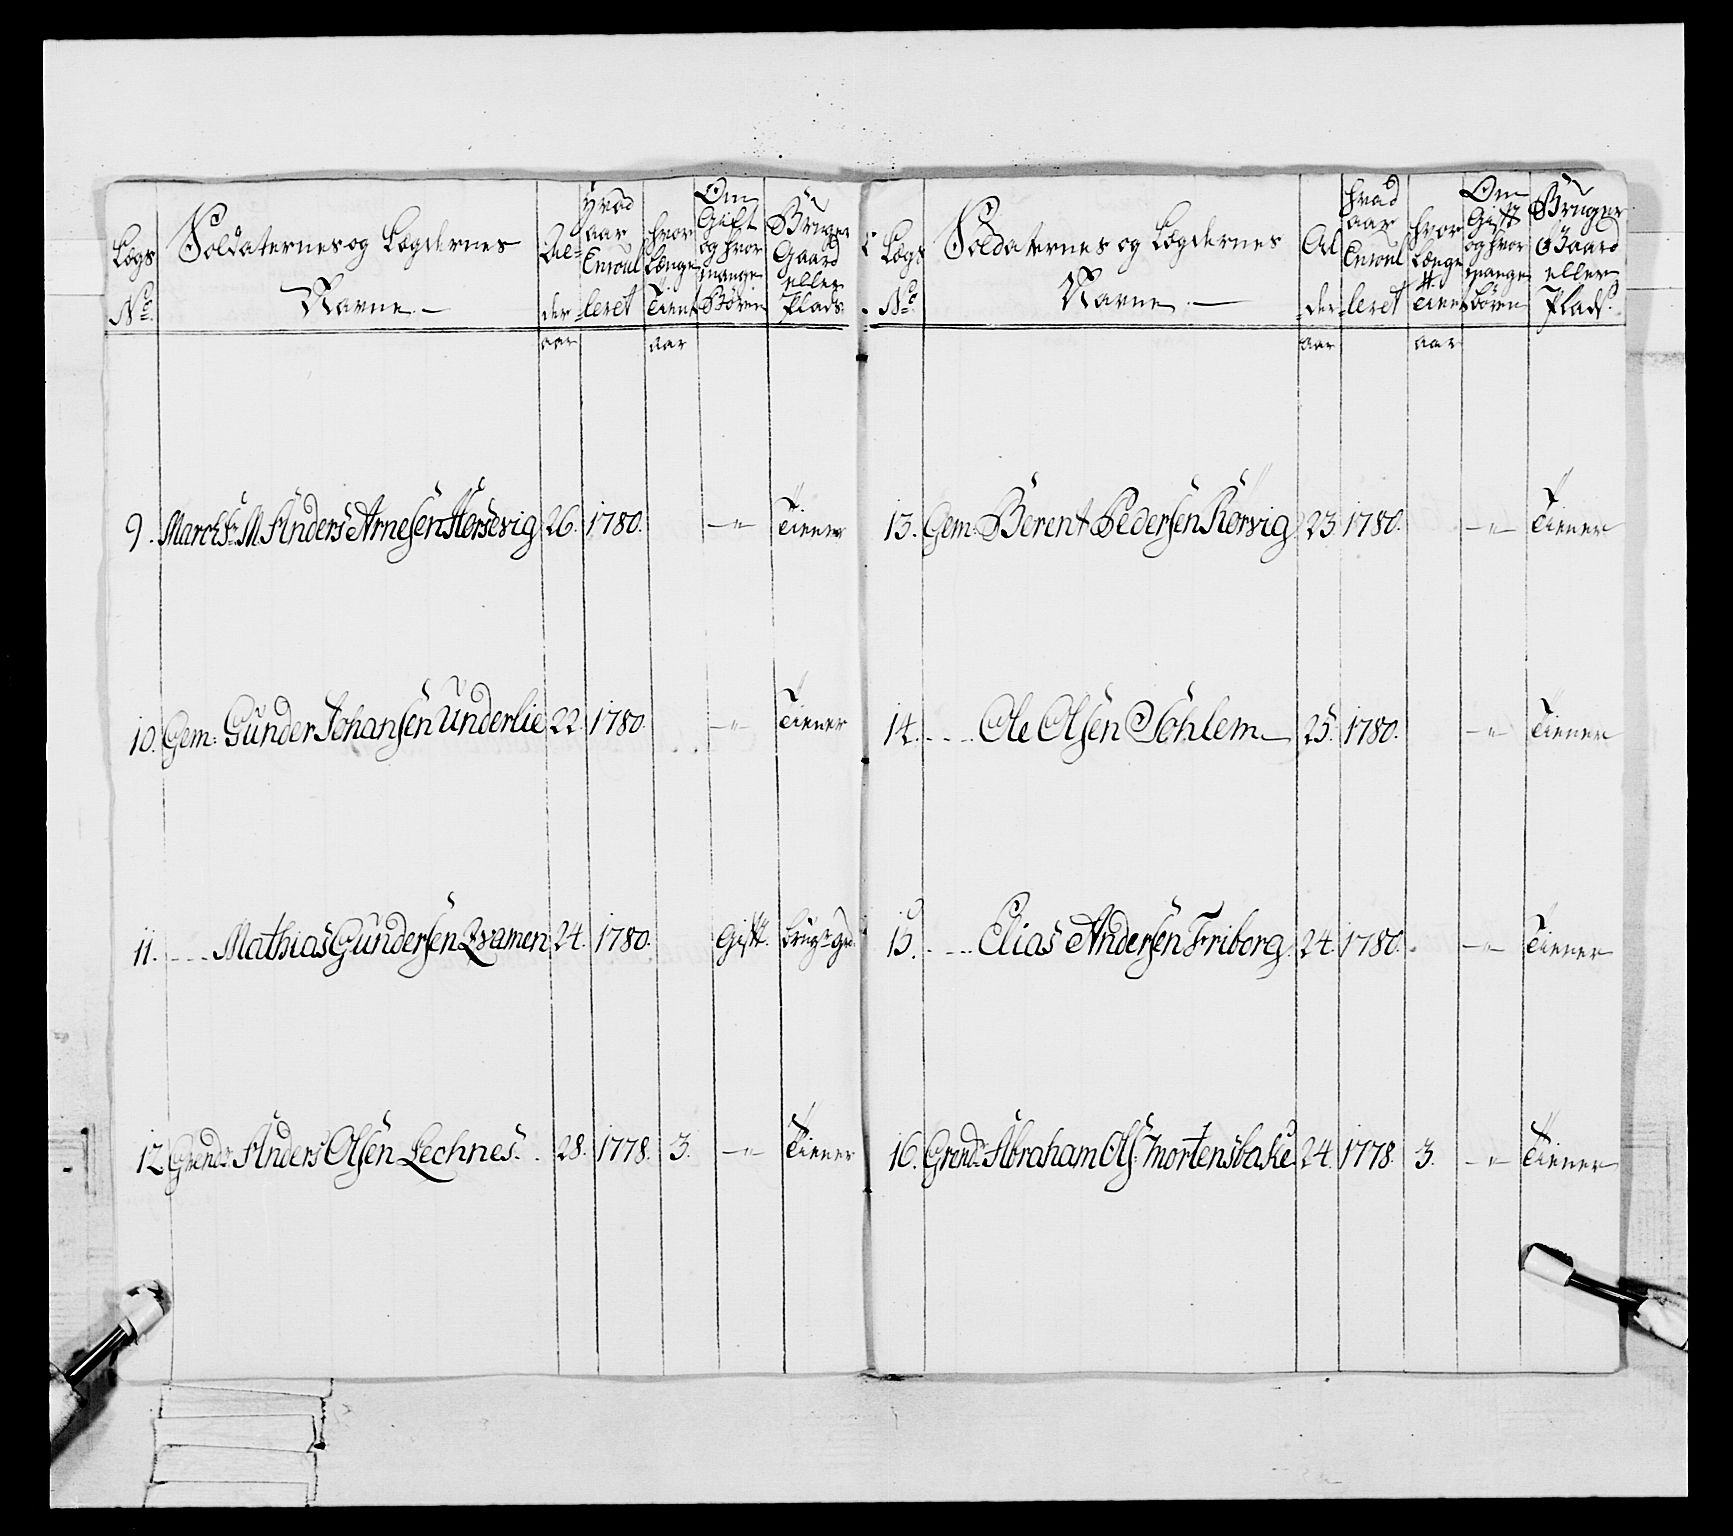 Legs No. | Soldaternes og Legdernes Navne.— | Al= der | hvad aar Enroul= leret | hvor længe Tient | Om Gift og hvor mange Börn | Bruger Gaard eller Plads.
aar aar
9. Anders Arnesen Hersevig 26. 1780. —"— Tiener
10. Gem: Gunder Johansen Underlie 22. 1780. —"— Tiener
11. ---- Mathias Gundersen Qvamen 24. 1780. Gift.
12. Grend: Anders Olsen Lechnes. 28. 1778. 3. —"— Tiener
Legs No. | Soldaternes og Legdernes Navne.— | Al der | hvad aar Enroul leret | hvor længe Tient | Om Gift og hvor mange börn | Bruger Gaard eller Plads.
aar aar
13. Gem: Berent Pedersen Rörvig 23. 1780. —"— Tiener
14. ---- Ole Olsen Söhlem — 25. 1780. —"— Tiener
15. ---- Elias Andersen Friborg 24. 1780. —"— Tiener
16. Grend: Abraham Ols: Mortensbake 24. 1778. 3. —"— Tiener